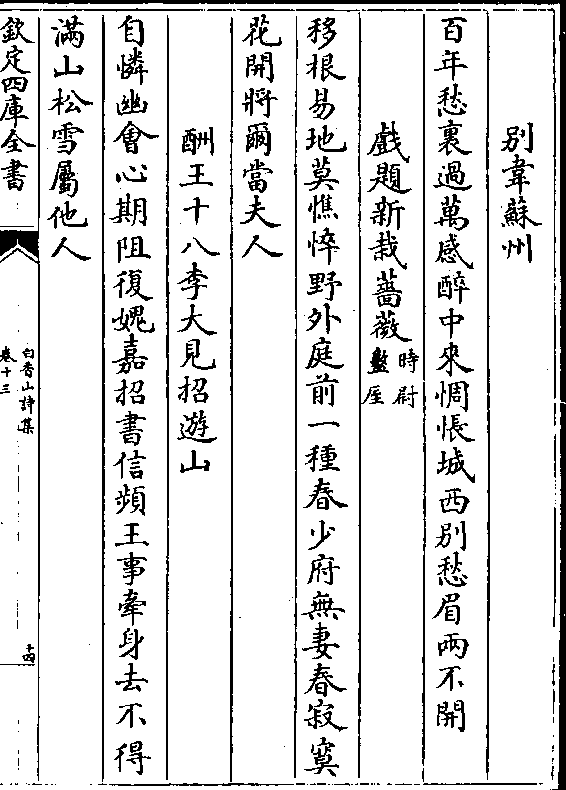 別韋蘇州
百年愁裏過萬感醉中來惆悵城西別愁眉兩不開
戲題新栽薔薇時尉盩厔
移根易地莫憔悴野外庭前一種春少府無妻春寂寞
花開將爾當夫人
酬王十八李大見招遊山
自憐幽會心期阻復愧嘉招書信頻王事牽身去不得
滿山松雪屬他人
欽定四庫全書
白香山詩集
卷十三
十四